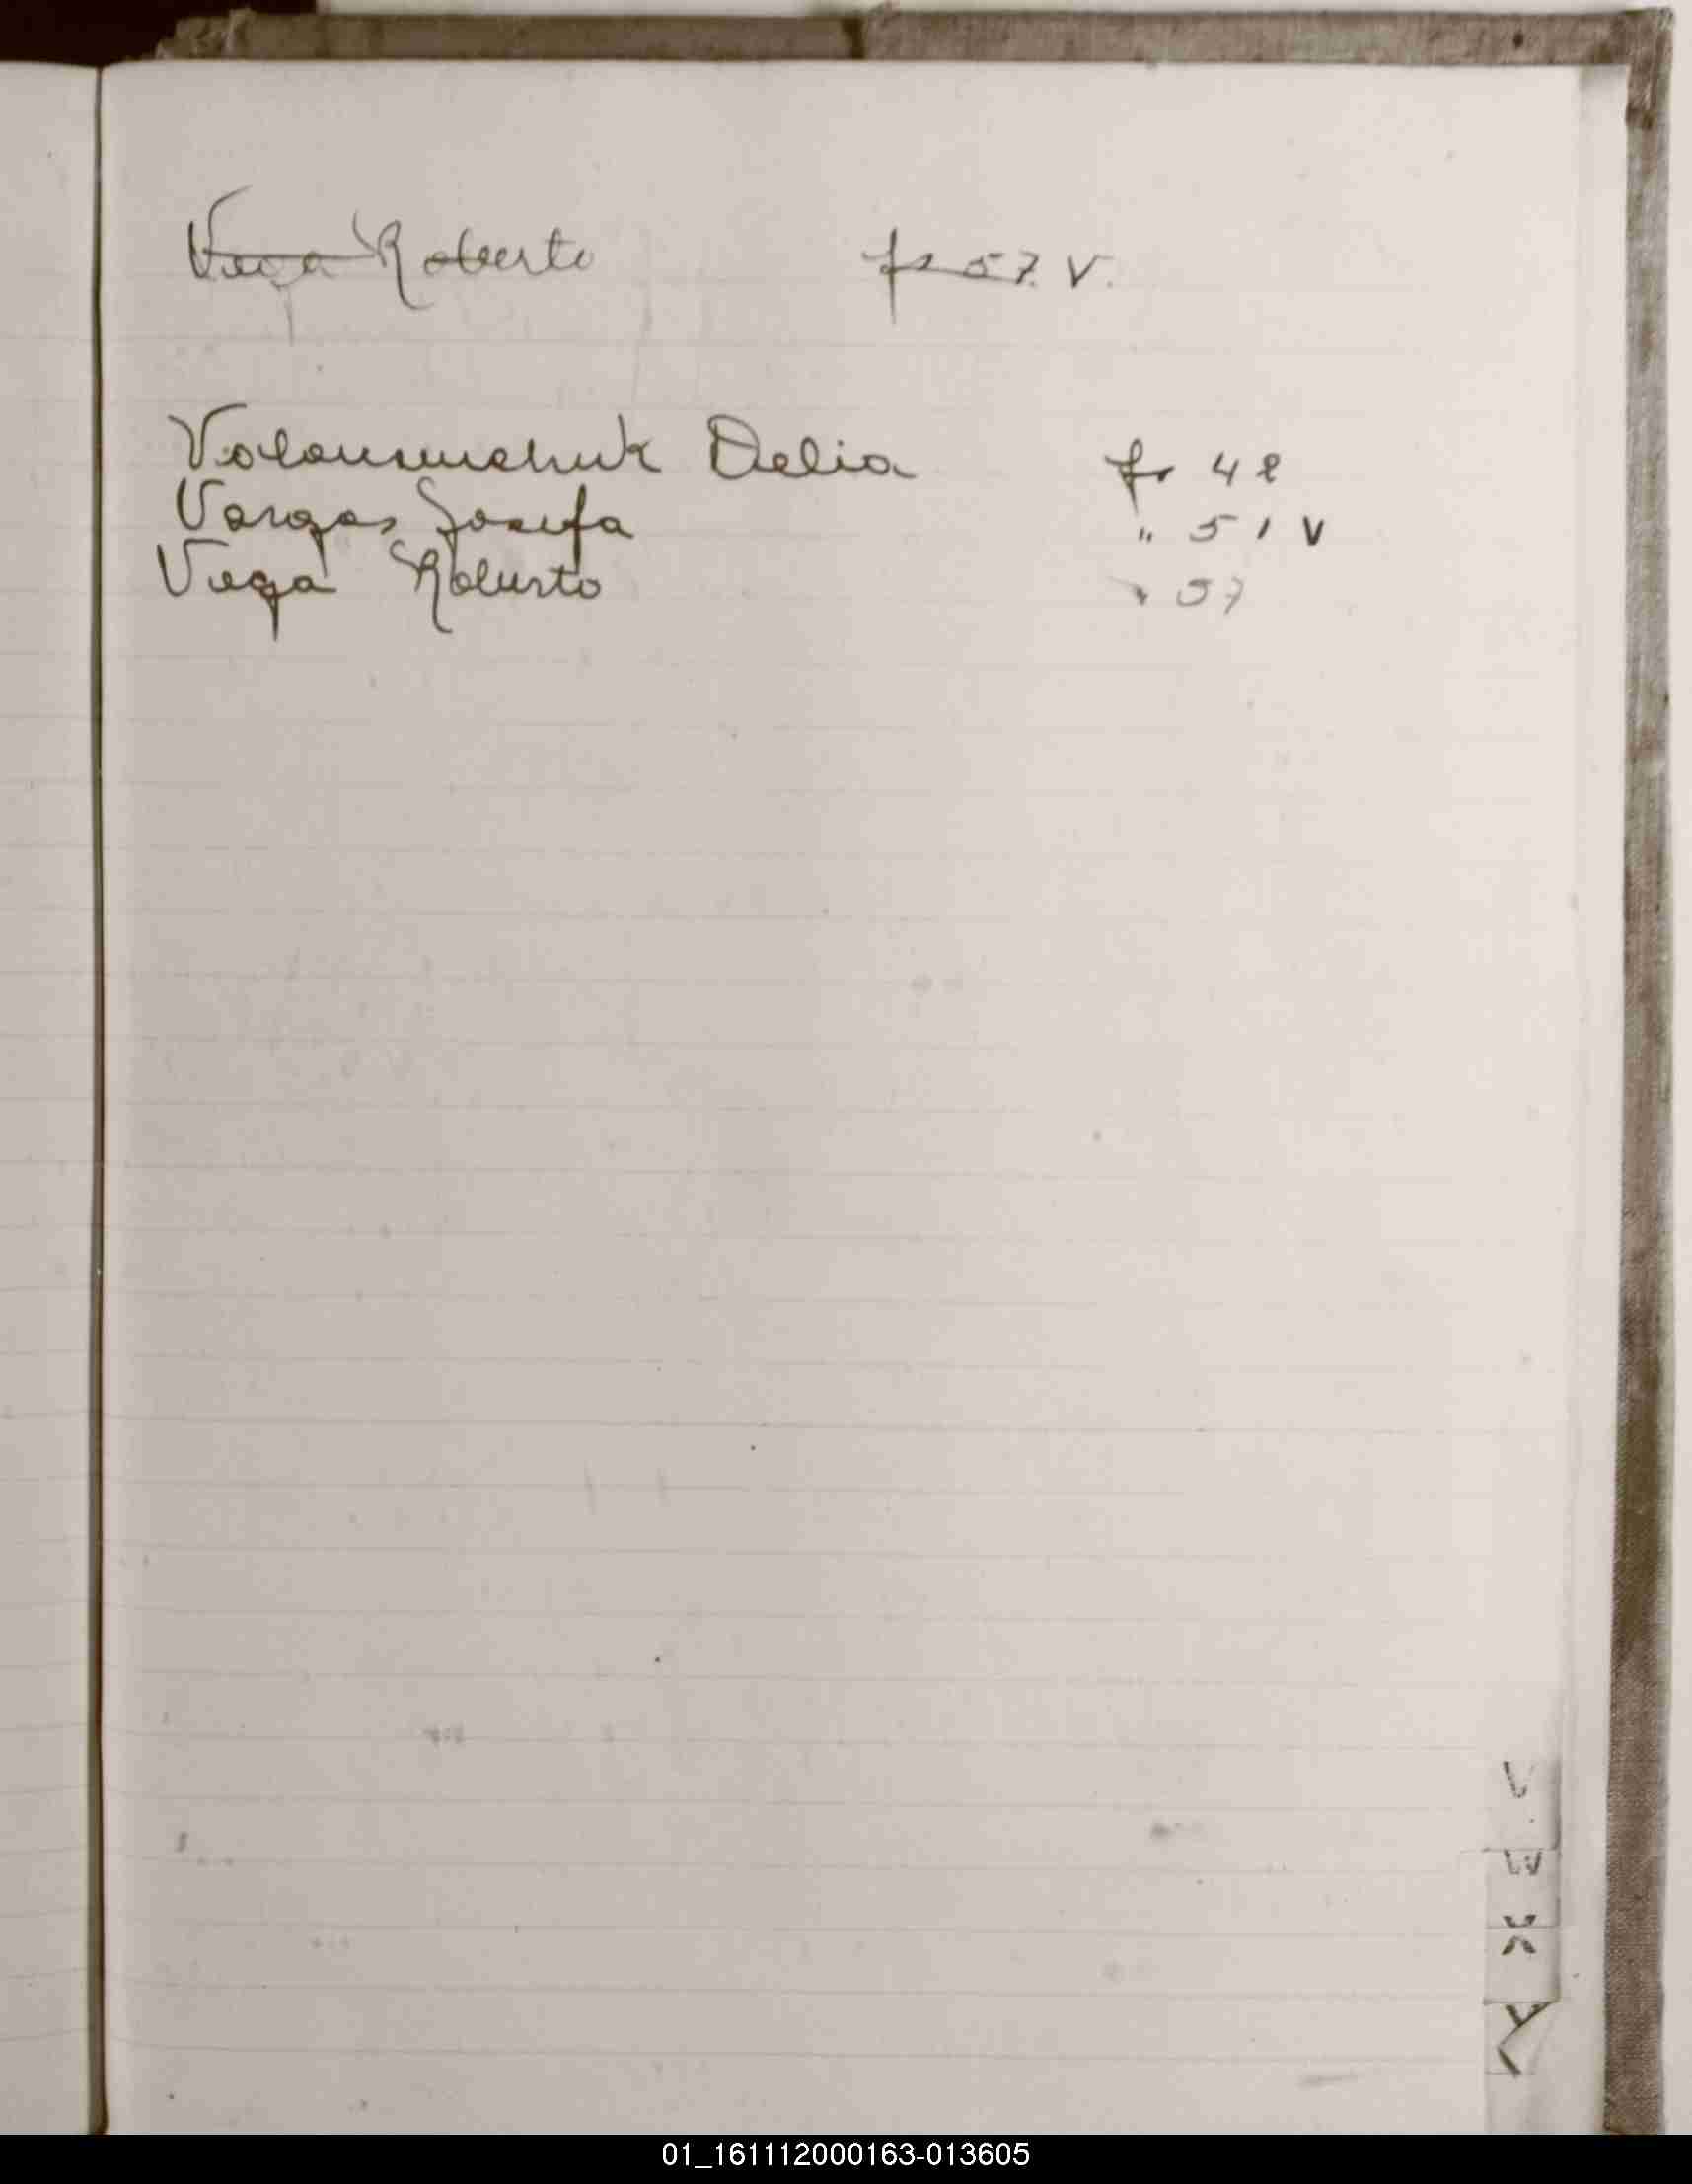 Vega Roberto fs 57. V.
Delia fs 48
Vargas Josefa " 51 V
Vega Roberto " 57
V
W
X
Y
01_161112000163-013605